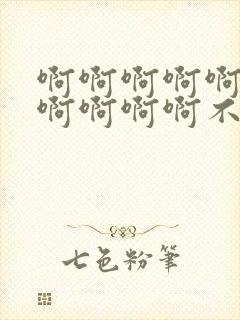 啊啊啊啊啊
啊啊啊啊不
七色粉筆